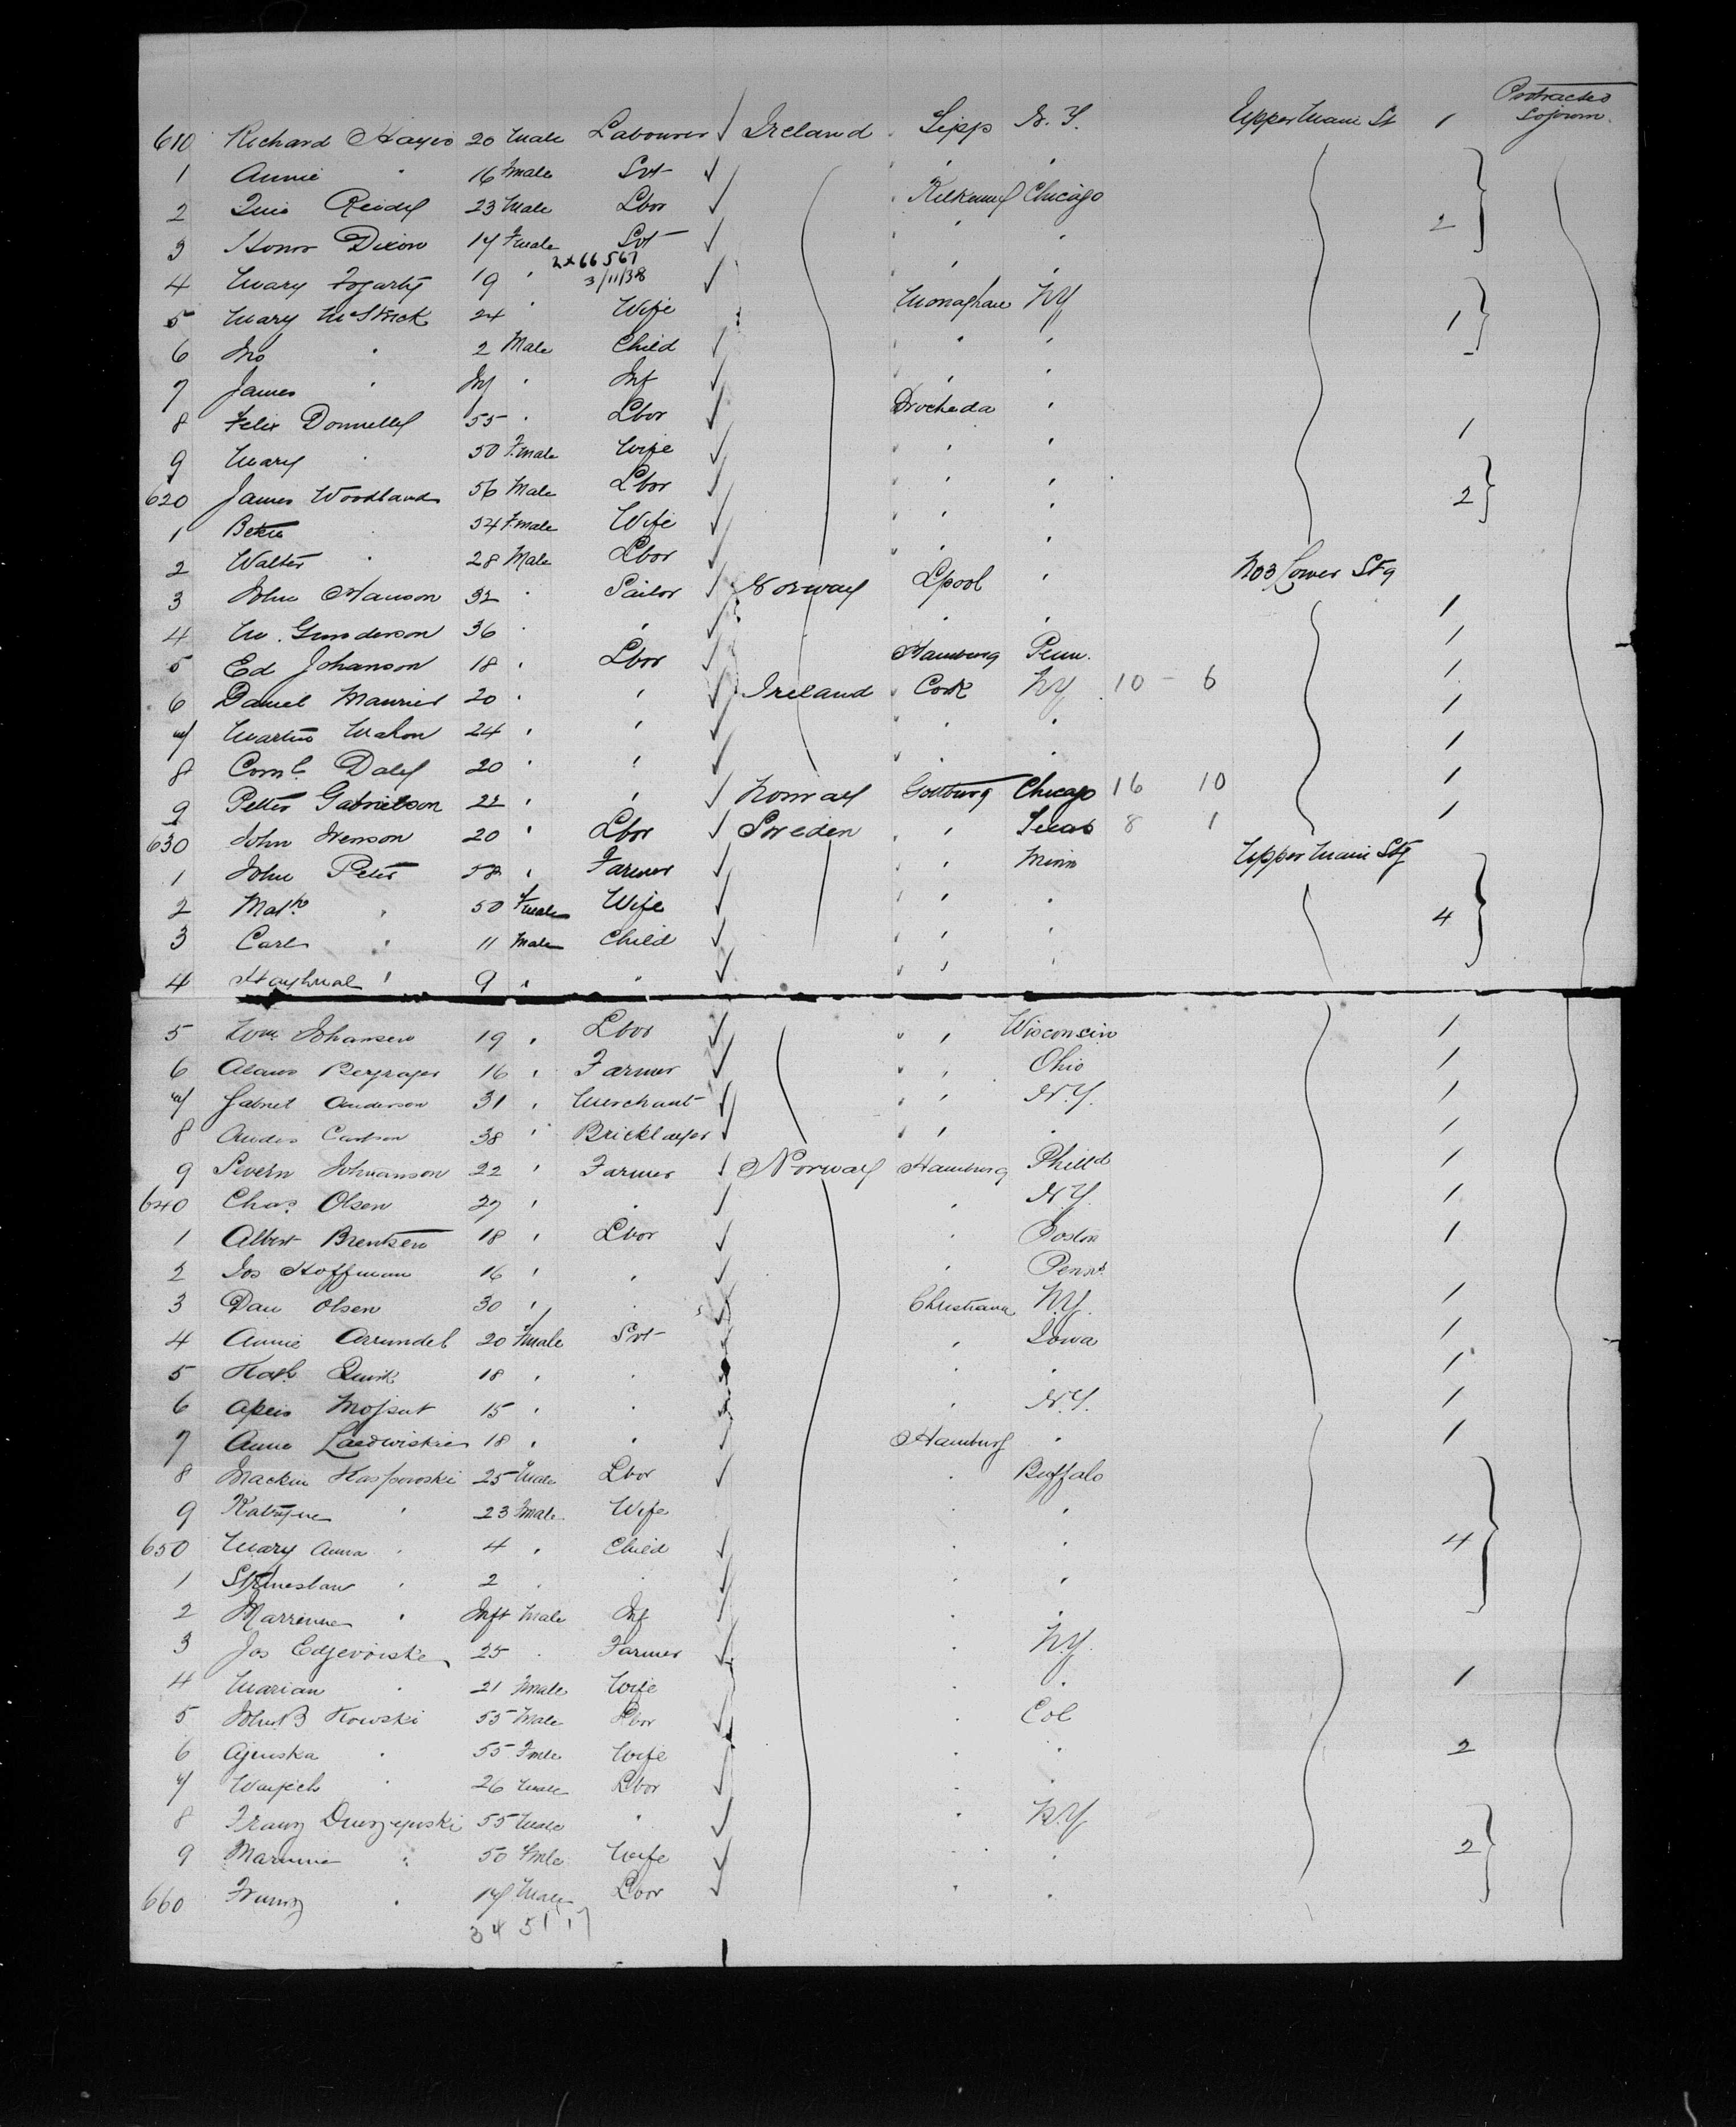 Protracted
610 Richard Hayes 20 Male Labourer Ireland Tipp N.Y. Upper Main St 1 Sojourn.
1 Annie " 16 Fmale Svt " "
2 Reidy 23 Male Lbor Kilkenny Chicago
3 Honor Dixon 17 Fmale Svt " " 2
2x66567
4 Mary Fogarty 19 " 3/11/38 " "
5 Mary 24 " Wife Monaghan NY
6 Jno " 2 Male Child " " 1
7 James " Inf " Inf " "
8 Felix Donnelly 55 " Lbor Drocheda "
9 Mary " 50 Fmale Wife " " 1
620 James Woodland 56 Male Lbor " "
1 " 54 Fmale Wife " " 2
2 Walter " 28 Male Lbor " "
3 John Hanson 32 " Sailor Norway Lpool " No3 Lower Stg
4 M. Gunderson 36 " " " " 1
5 Ed Johanson 18 " Lbor Hamburg Penn. 1
6 Daniel 20 " " Ireland Cork NY 10 - 6 1
7 Martin Mahon 24 " " " " 1
8 Daly 20 " " " " 1
9 Petter Gabrielson 22 " " Norway Gottburg Chicago 16 10 1
630 John 20 " Lbor Sweden " " Texas 8 1 1
1 John Peter 58 " Farmer " " Minn Upper Main Stg
2 " 50 Fmale Wife " " "
3 Carl " 11 Male Child " " " 4
4 " 9 " " " " "
5 Wm Johansen 19 " Lbor " " Wisconsin 1
6 16 " Farmer " " Ohio 1
7 Gabriel Anderson 31 " Merchant " " N.Y. 1
8 Andes Carlson 38 " Bricklayer " " " 1
9 Severn Johanson 22 " Farmer Norway Hamburg Philld 1
640 Chas Olsen 27 " " " N.Y. 1
1 Albert Brentsen 18 " Lbor " Boston 1
2 Jos Hoffman 16 " " " Penna
3 Dan Olsen 30 " " Christiana N.Y. 1
4 Annie Arundel 20 Fmale Svt " Iowa 1
5 Kath Quirk 18 " " " " 1
6 15 " " " N.Y. 1
7 Anna 18 " " Hamburg " 1
8 Kasperoski 25 Male Lbor " Buffalo
9 " 23 Fmale Wife " "
650 Mary Anna " 4 " Child " " 4
1 " 2 " " " "
2 " Inft Male Inf " "
3 Jos 25 " Farmer " N.Y.
4 Marian " 21 Fmale Wife " " 1
5 55 Male Lbor " Col
6 " 55 Fmle Wife " " 2
7 " 26 Male Lbor " "
8 Franz 55 Male " " N.Y
9 " 50 Fmle Wife " " 2
660 " 17 Male Lbor " "
34 51 17